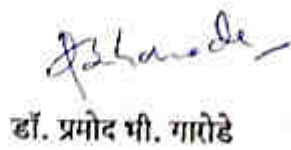 डॉ. प्रमोद भी. गारोडे